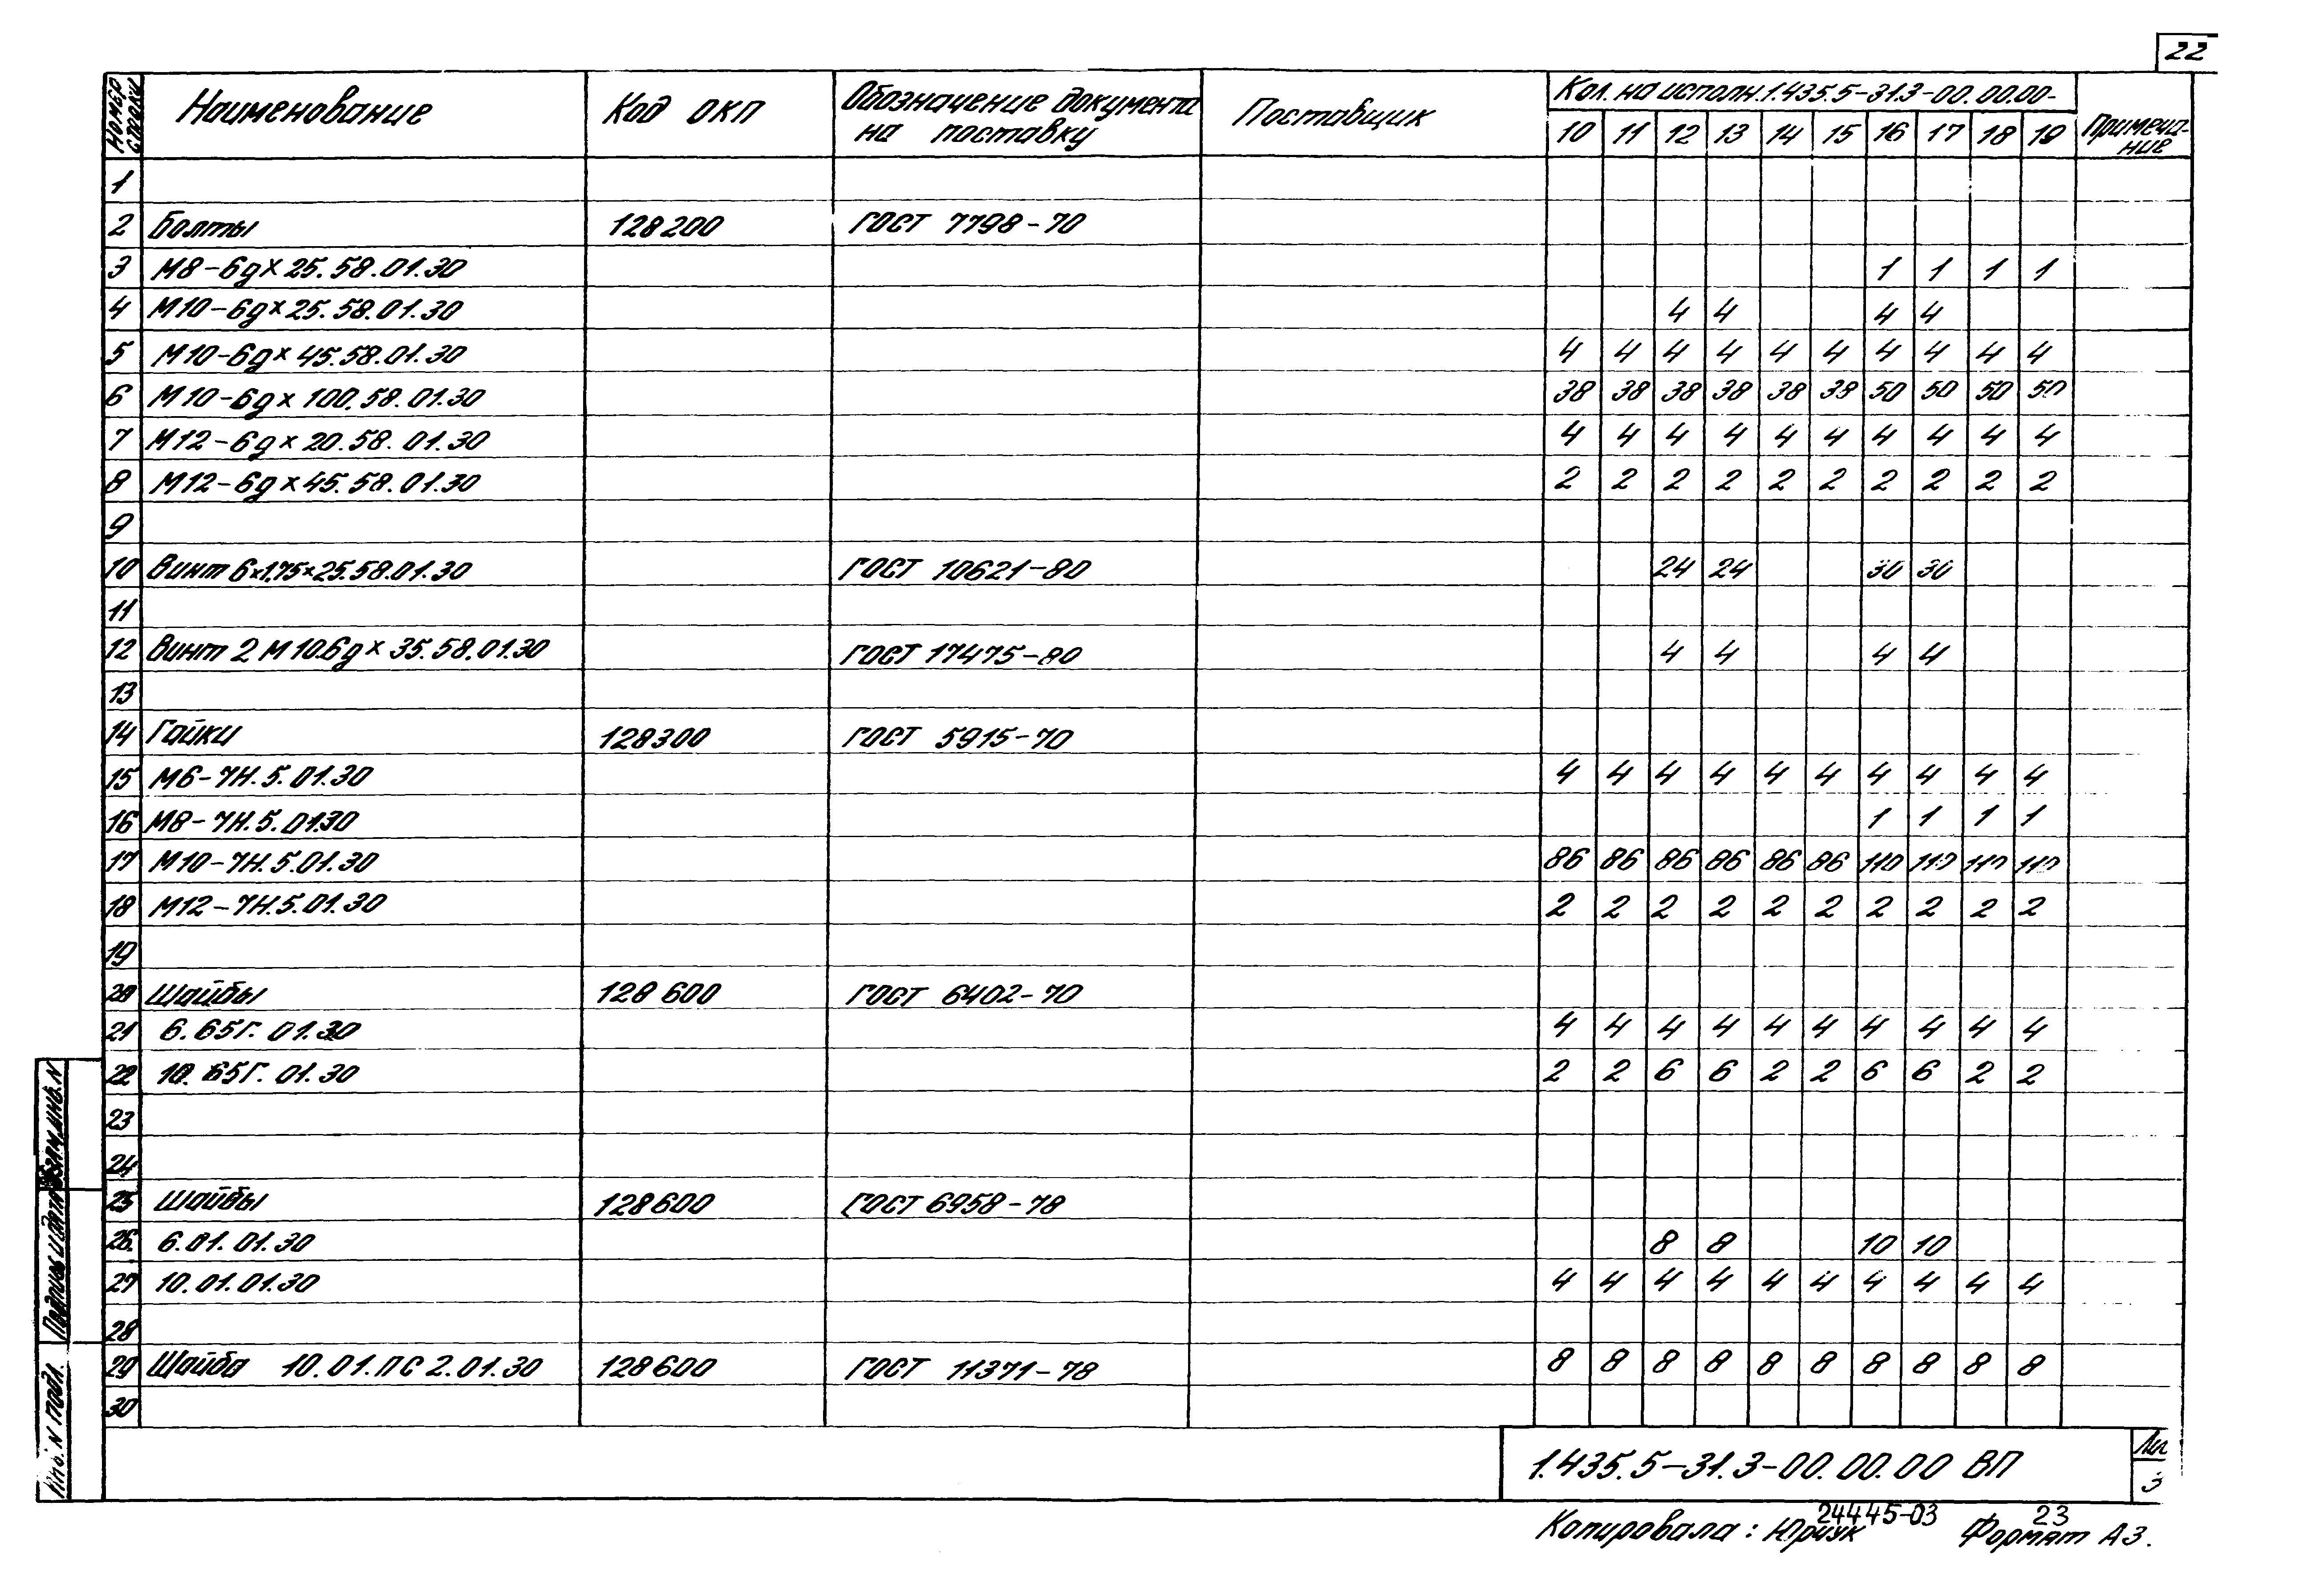 22
Номер строки Наименование Код ОКП Обозначение документа на поставку Поставщик Кол. на исполн. 1.435.5-31.3-00.00.00- Примечание
10 11 12 13 14 15 16 17 18 19
1
2 Болты 128200 ГОСТ 7798-70
3 М8-6gx25.58.01.30 1 1 1 1
4 М10-6gx25.58.01.30 4 4 4 4
5 М10-6gx45.58.01.30 4 4 4 4 4 4 4 4 4 4
6 М10-6gx100.58.01.30 38 38 38 38 38 38 50 50 50 50
7 М12-6gx20.58.01.30 4 4 4 4 4 4 4 4 4 4
8 М12-6gx45.58.01.30 2 2 2 2 2 2 2 2 2 2
9
10 Винт 6x1,75x25.58.01.30 ГОСТ 10621-80 24 24 30 30
11
12 Винт 2 М10.6gx35.58.01.30 ГОСТ 17475-80 4 4 4 4
13
14 Гайки 128300 ГОСТ 5915-70
15 М6-7Н.5.01.30 4 4 4 4 4 4 4 4 4 4
16 М8-7Н.5.01.30 1 1 1 1
17 М10-7Н.5.01.30 86 86 86 86 86 86 110 110 110 110
18 М12-7Н.5.01.30 2 2 2 2 2 2 2 2 2 2
19
20 Шайбы 128600 ГОСТ 6402-70
21 6.65Г.01.30 4 4 4 4 4 4 4 4 4 4
22 10.65Г.01.30 2 2 6 6 2 2 6 6 2 2
23
24
25 Шайбы 128600 ГОСТ 6958-78
26. 6.01.01.30 8 8 10 10
27 10.01.01.30 4 4 4 4 4 4 4 4 4 4
28
29 Шайба 10.01.ПС 2.01.30 128600 ГОСТ 11371-78 8 8 8 8 8 8 8 8 8 8
30
Взам.инв.N
Подпись и дата
Инв. N подл.
1.435.5-31.3-00.00.00 ВП
3
24445-03 23
Копировала: Юрчук Формат А3.